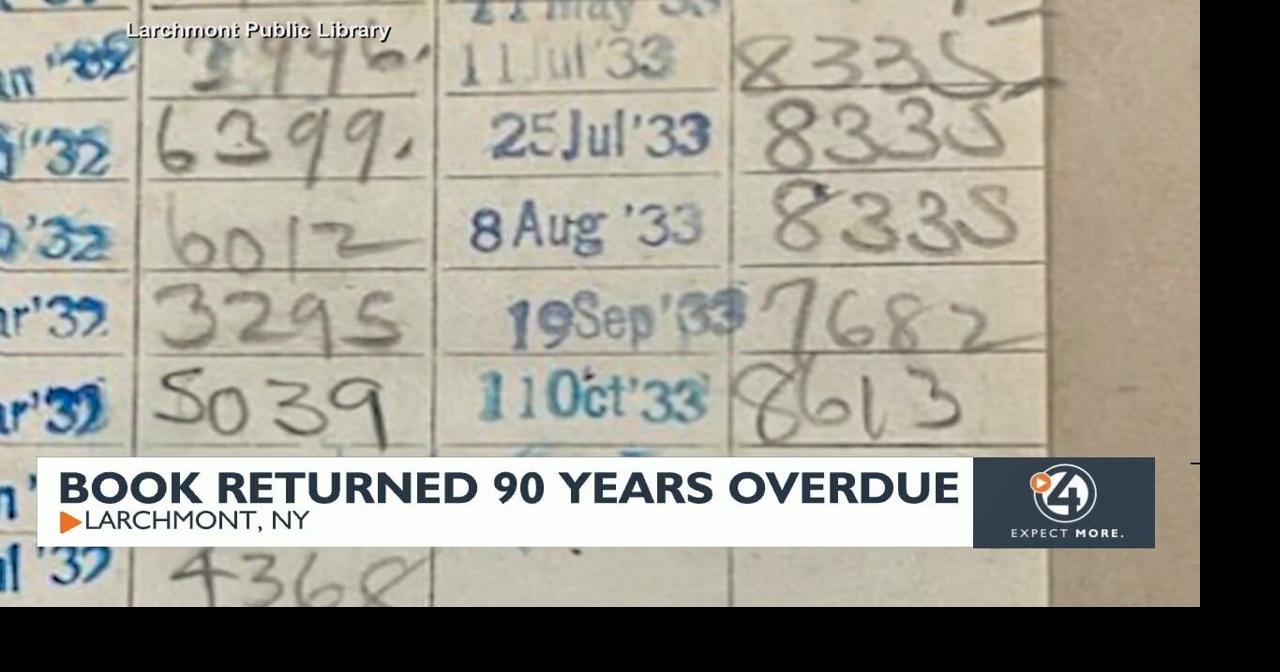 Larchmont Public Library
'32 11 Jul '33 8335
'32 6399. 25 Jul '33 8335
'32 6012 8 Aug '33 8335
ar '32 3295 19 Sep '33 7682
ar '32 5039 11 Oct '33 8613
BOOK RETURNED 90 YEARS OVERDUE
LARCHMONT, NY
4
EXPECT MORE.
'32 4368